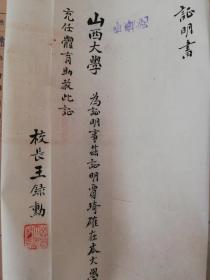 証明書
山西大學 為証明事茲証明賈琦雄在本大學
充任體育助教此証
校長王錄勳